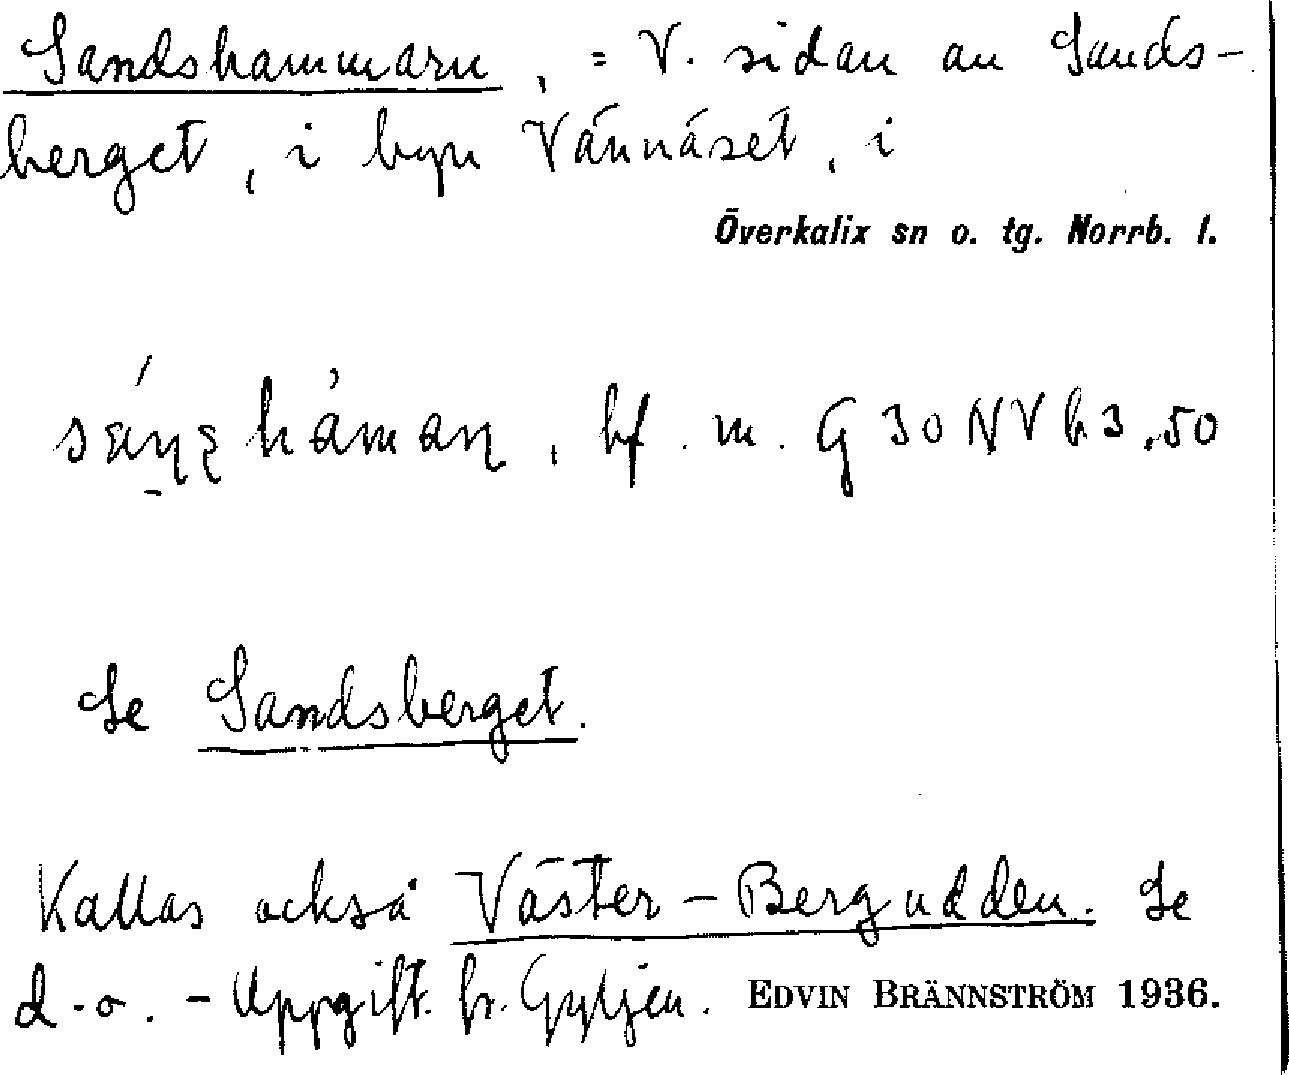 Sandshammarn, = V. sidan av Sands-
berget, i byn Vännäset, i
Överkalix sn o. tg. Norrb. l.
hf. m. G 30 NV h 3,50
Se Sandsberget.
Kallas också Väster-Bergudden. Se
d.o. - Uppgift. fr. Gyljen. EDVIN BRÄNNSTRÖM 1936.